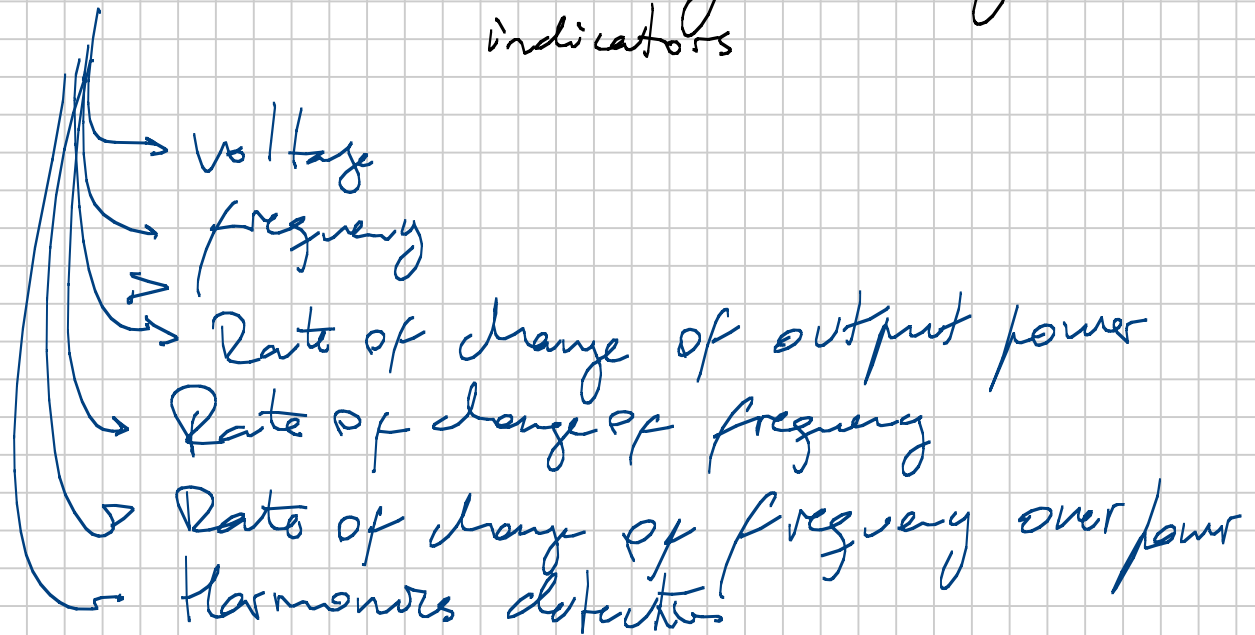 indicators
voltage
frequency
Rate of change of output power
Rate of change of frequency
Rate of change of frequency over power
Harmonics detection